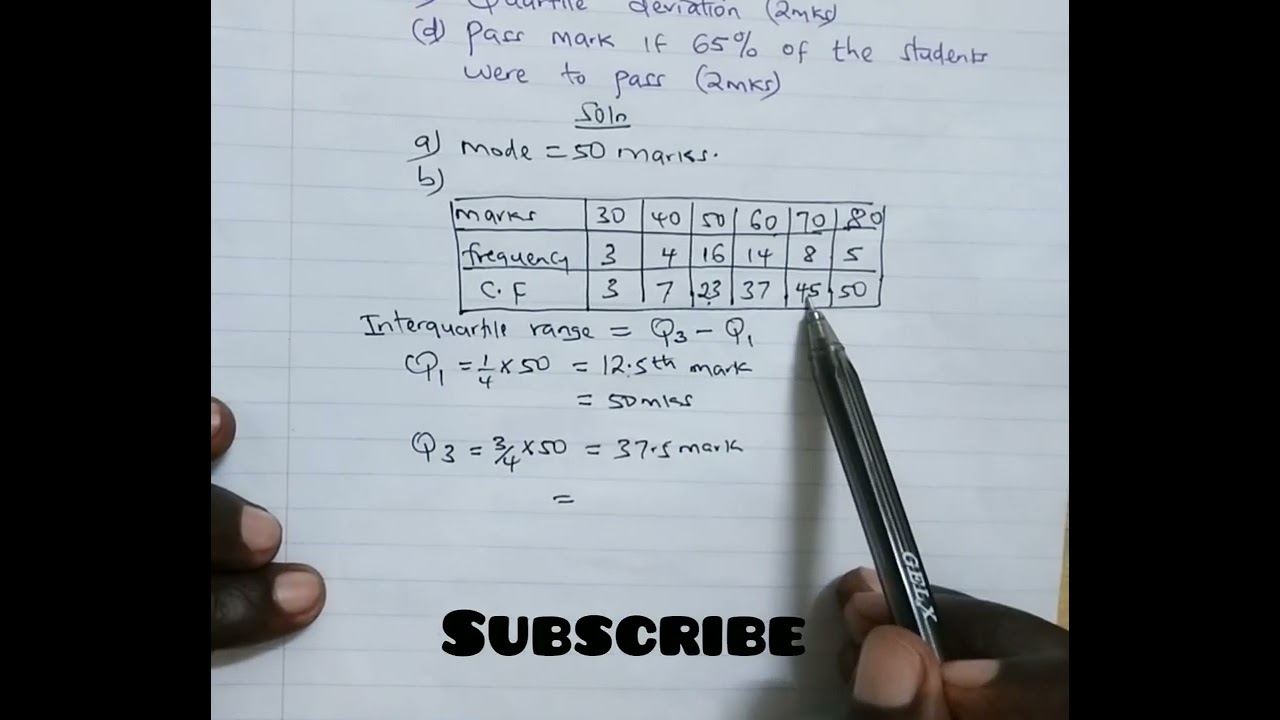 Quartile deviation (2mks)
(d) Pass mark if 65% of the students
were to pass (2mks)
Soln
a) mode = 50 marks.
b)
marks 30 40 50 60 70 80
frequency 3 4 16 14 8 5
C.F 3 7 23 37 45 50
Interquartile range = Q3 - Q1
Q1 = 1/4 x 50 = 12.5th mark
= 50mks
Q3 = 3/4 x 50 = 37.5 mark
=
GELX
SUBSCRIBE